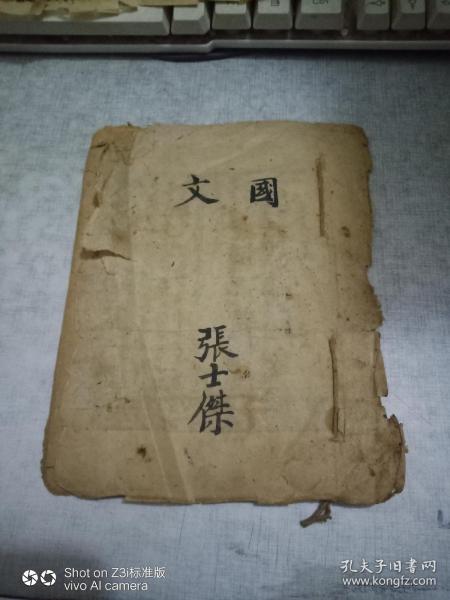 國文
張士傑
Shot on Z3i标准版
vivo AI camera
孔夫子旧书网
www.kongfz.com